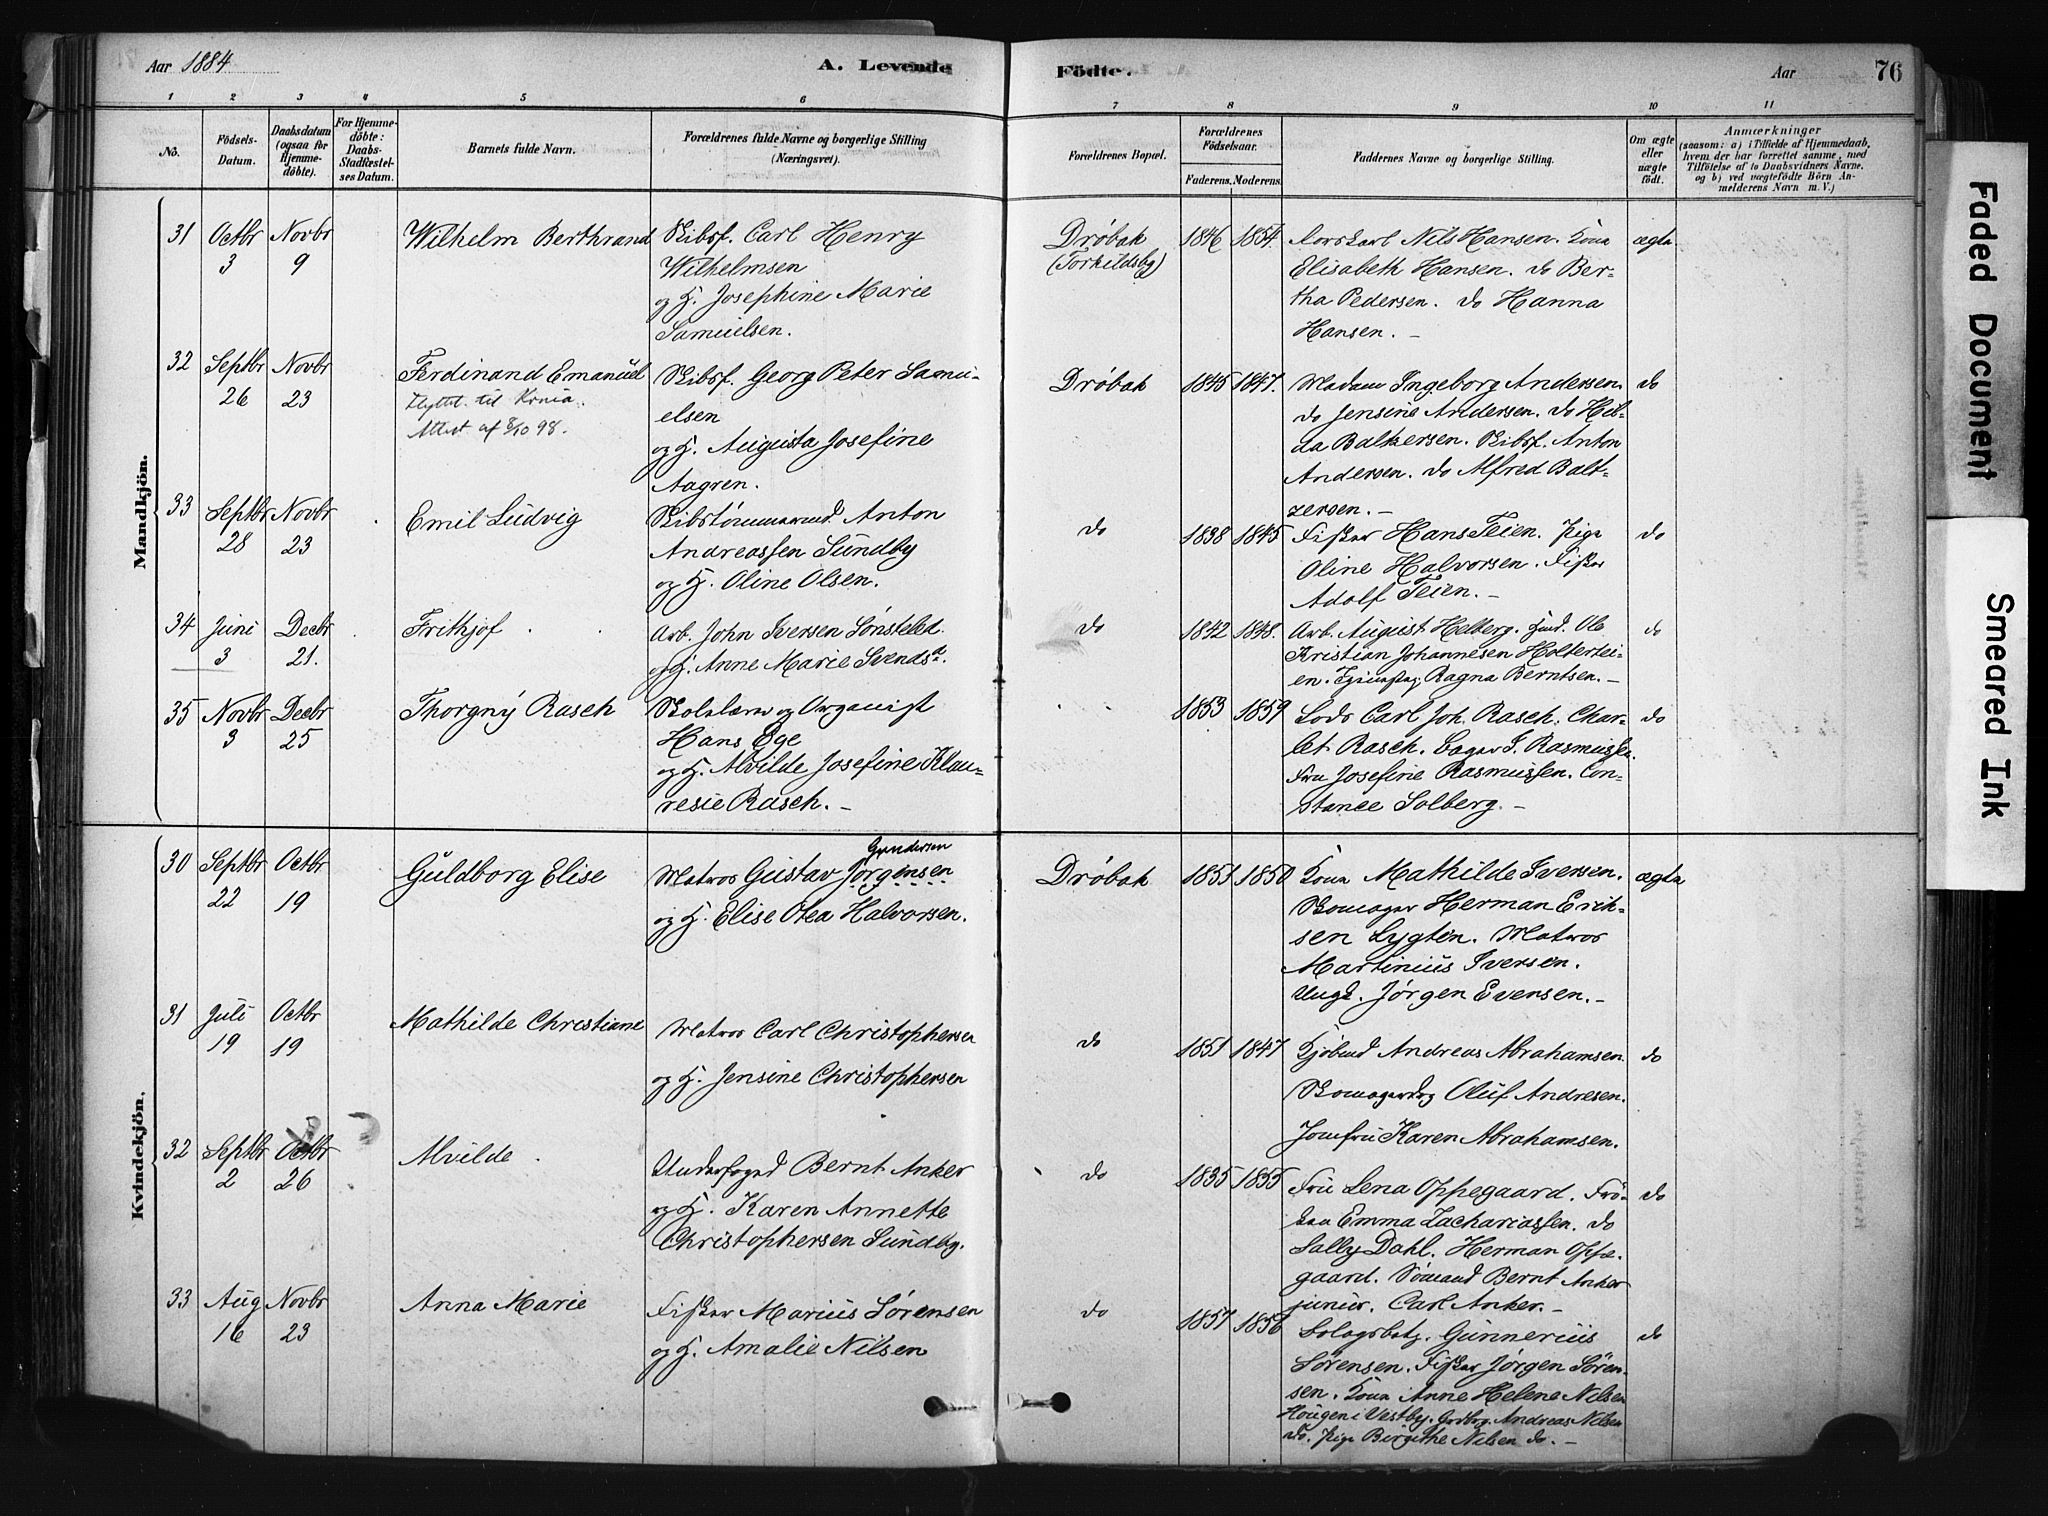 Aar 1884
A. Levende
Födte.
Aar
76
1 2 3 4 5 6 7 8 9 10 11
No.
Födsels-
Datum.
Daabsdatum
(ogsaa for
Hjemme-
döbte).
For Hjemme-
döbte:
Daabs-
Stadfæstel-
ses Datum.
Barnets fulde Navn.
Forældrenes fulde Navne og borgerlige Stilling
(Næringsvei).
Forældrenes Bopæl.
Forældrenes
Födselsaar.
Faderens. Moderens.
Faddernes Navne og borgerlige Stilling.
Om ægte
eller
uægte
födt.
Anmærkninger
(saasom: a) i Tilfælde af Hjemmedaab,
hvem der har forrettet samme, med
Tilföielse af to Daabsvidners Navne,
og b) ved uægtefödte Börn An-
melderens Navn m. V.)
Mandkjön.
31 Octbr 3 Novbr 9
Wilhelm Berthrand
Skibsf. Carl Henry
Wilhelmsen
og H. Josephine Marie
Samuelsen.
Drøbak
(Torkildsby)
1846 1854.
Nils Hansen. Kona
Elisabeth Hansen. do Ber-
tha Pedersen. do Hanna
Hansen. –
ægte
32 Septbr 26 Novbr 23
Ferdinand Emanuel
Flyttet til Krnia.
Attest af 8/10 98.
Skibsf. Georg Peter Samu-
elsen
og H. Augusta Josefine
Aagren.
Drøbak
1845 1847.
Madam Ingeborg Andersen.
do Jensine Andersen. do Hil-
da Baltzersen. Skibsf. Anton
Andersen. do Alfred Balt-
zersen. –
do
33 Septbr 28 Novbr 23
Emil Ludvig
Skibstømmermd. Anton
Andreassen Sundby
og H. Oline Olsen.
do
1838 1845
Fisker Hans Teien. Pige
Oline Halvorsen. Fisker
Adolf Teien. –
do
34 Juni 3 Decbr 21.
Frithjof
Arb. John Iversen Sønsteled.
og H. Anne Marie Svendsn.
do
1842 1848.
Arb. August Helberg. Ole
Kristian Johannesen Holtertei-
en. Ragna Berntsen. –
do
35 Novbr 3 Decbr 25
Thorgny Rasch
Skolelærer og Organist
Hans Ege
og H. Alvilde Josefine Klau-
resie Rasch. –
1853 1859
Lods Carl Joh. Rasch. Char-
lot Rasch. Bager J. Rasmussen.
Fru Josefine Rasmussen. Con-
stance Solberg. –
do
Kvindekjön.
30 Septbr 22 Octbr 19
Guldborg Elise
Gundersen
Matros Gustav Jørgensen
og H. Elise Otea Halvorsen.
Drøbak
1851 1850
Kona Mathilde Iversen.
Skomager Herman Erik-
sen Lygten. Matros
Martinius Iversen.
Ungk. Jørgen Evensen. –
ægte
31 Juli 19 Octbr 19
Mathilde Christiane
Matros Carl Christophersen
og H. Jensine Christophersen
do
1851 1847
Kjøbmd Andreas Abrahamsen.
Skomagerdrg Oluf Andresen.
Jomfru Karen Abrahamsen.
do
32 Septbr 2 Octbr 26
Alvilde
Underfoged Bernt Anker
og H. Karen Annette
Christophersen Sundby.
do
1835 1855
Fru Lena Oppegaard. Frö-
ken Emma Zachariassen. do
Sally Dahl. Herman Oppe-
gaard. Sömand Bernt Anker
junior. Carl Anker. –
do
33 Aug 16 Novbr 23
Anna Marie
Fisker Marius Sørensen
og H. Amalie Nilsen
do
1857 1856
Gunnerius
Sørensen. Fisker Jørgen Sören-
sen. Kona Anne Helene Nilsen
Hougen i Vestby. Grdbrg. Andreas Nilsen
do. Pige Birgithe Nilsen do. –
do
Faded Document
Smeared Ink